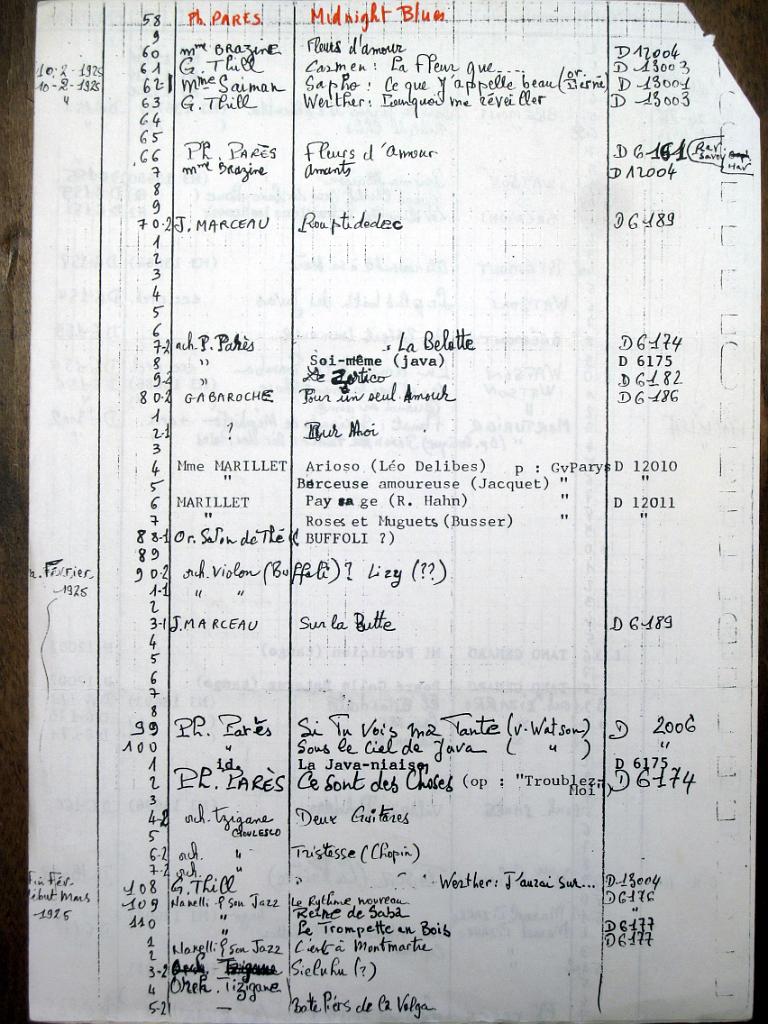 58 Ph. PARÈS Midnight Blues
9
60 Mme BRAZINE Fleurs d'amour D 12004
10-2-1925 61 G. Thill Carmen : La Fleur que.... D-13003
10-2-1925 62-1 Mme Saiman Sapho : Ce que j'appelle beau (or D-13001
" 63 G. Thill Werther: Pourquoi me réveiller D-13003
64
65
66 Ph. PARÈS Fleurs d'amour D 6161
7 Mme Brazine Amants D 12004
8
9
70-2 J. MARCEAU Rouptidedec D6-189
1
2
3
4
5
6
7-2 orch. P. Parès La Belotte D6174
8 " Soi-même (java) D 6175
9-1 " Le Zortico D6182
80-2 GABAROCHE Pour un seul Amour D6-186
1
2-1 ? Pour Moi
3
4 Mme MARILLET Arioso (Léo Delibes) p : GvParys D 12010
5 " Berceuse amoureuse (Jacquet) " "
6 MARILLET Paysage (R. Hahn) D 12011
7 " Roses et Muguets (Busser) " "
88-1 Or. Salon de Thé ( BUFFOLI ?)
89
Février 1925 90-2 orch. Violon (Buffoli)? Lizy (??)
1-1 " "
2
3-1 J. MARCEAU Sur la Butte D6-189
4
5
6
7
8
99 Ph. Parès Si Tu Vois ma Tante (v. Watson) D 2006
100 " Sous le Ciel de Java ( " ) "
1 id. La Java-niaise D 6175
2 Ph. PARÈS Ce sont des Choses (op : "Troublez-Moi") D6174
3
4-2 orch. Tzigane Deux Guitares
5 CIOULESCO
6-2 orch. " Tristesse (Chopin)
7-2 orch. "
Fin Fév. 108 G. Thill " " Werther: J'aurai sur... D-13004
début Mars 109 Nanelli & son Jazz Le Rythme nouveau D6176
1925 " Reine de Saba "
110 " Le Trompette en Bois D6177
1 Nanelli & son Jazz C'est à Montmartre D6177
2
3-2 Orch. Tzigane Sieluhu (?)
4 Orch. Tzigane
5-2 — Bateliers de la Volga